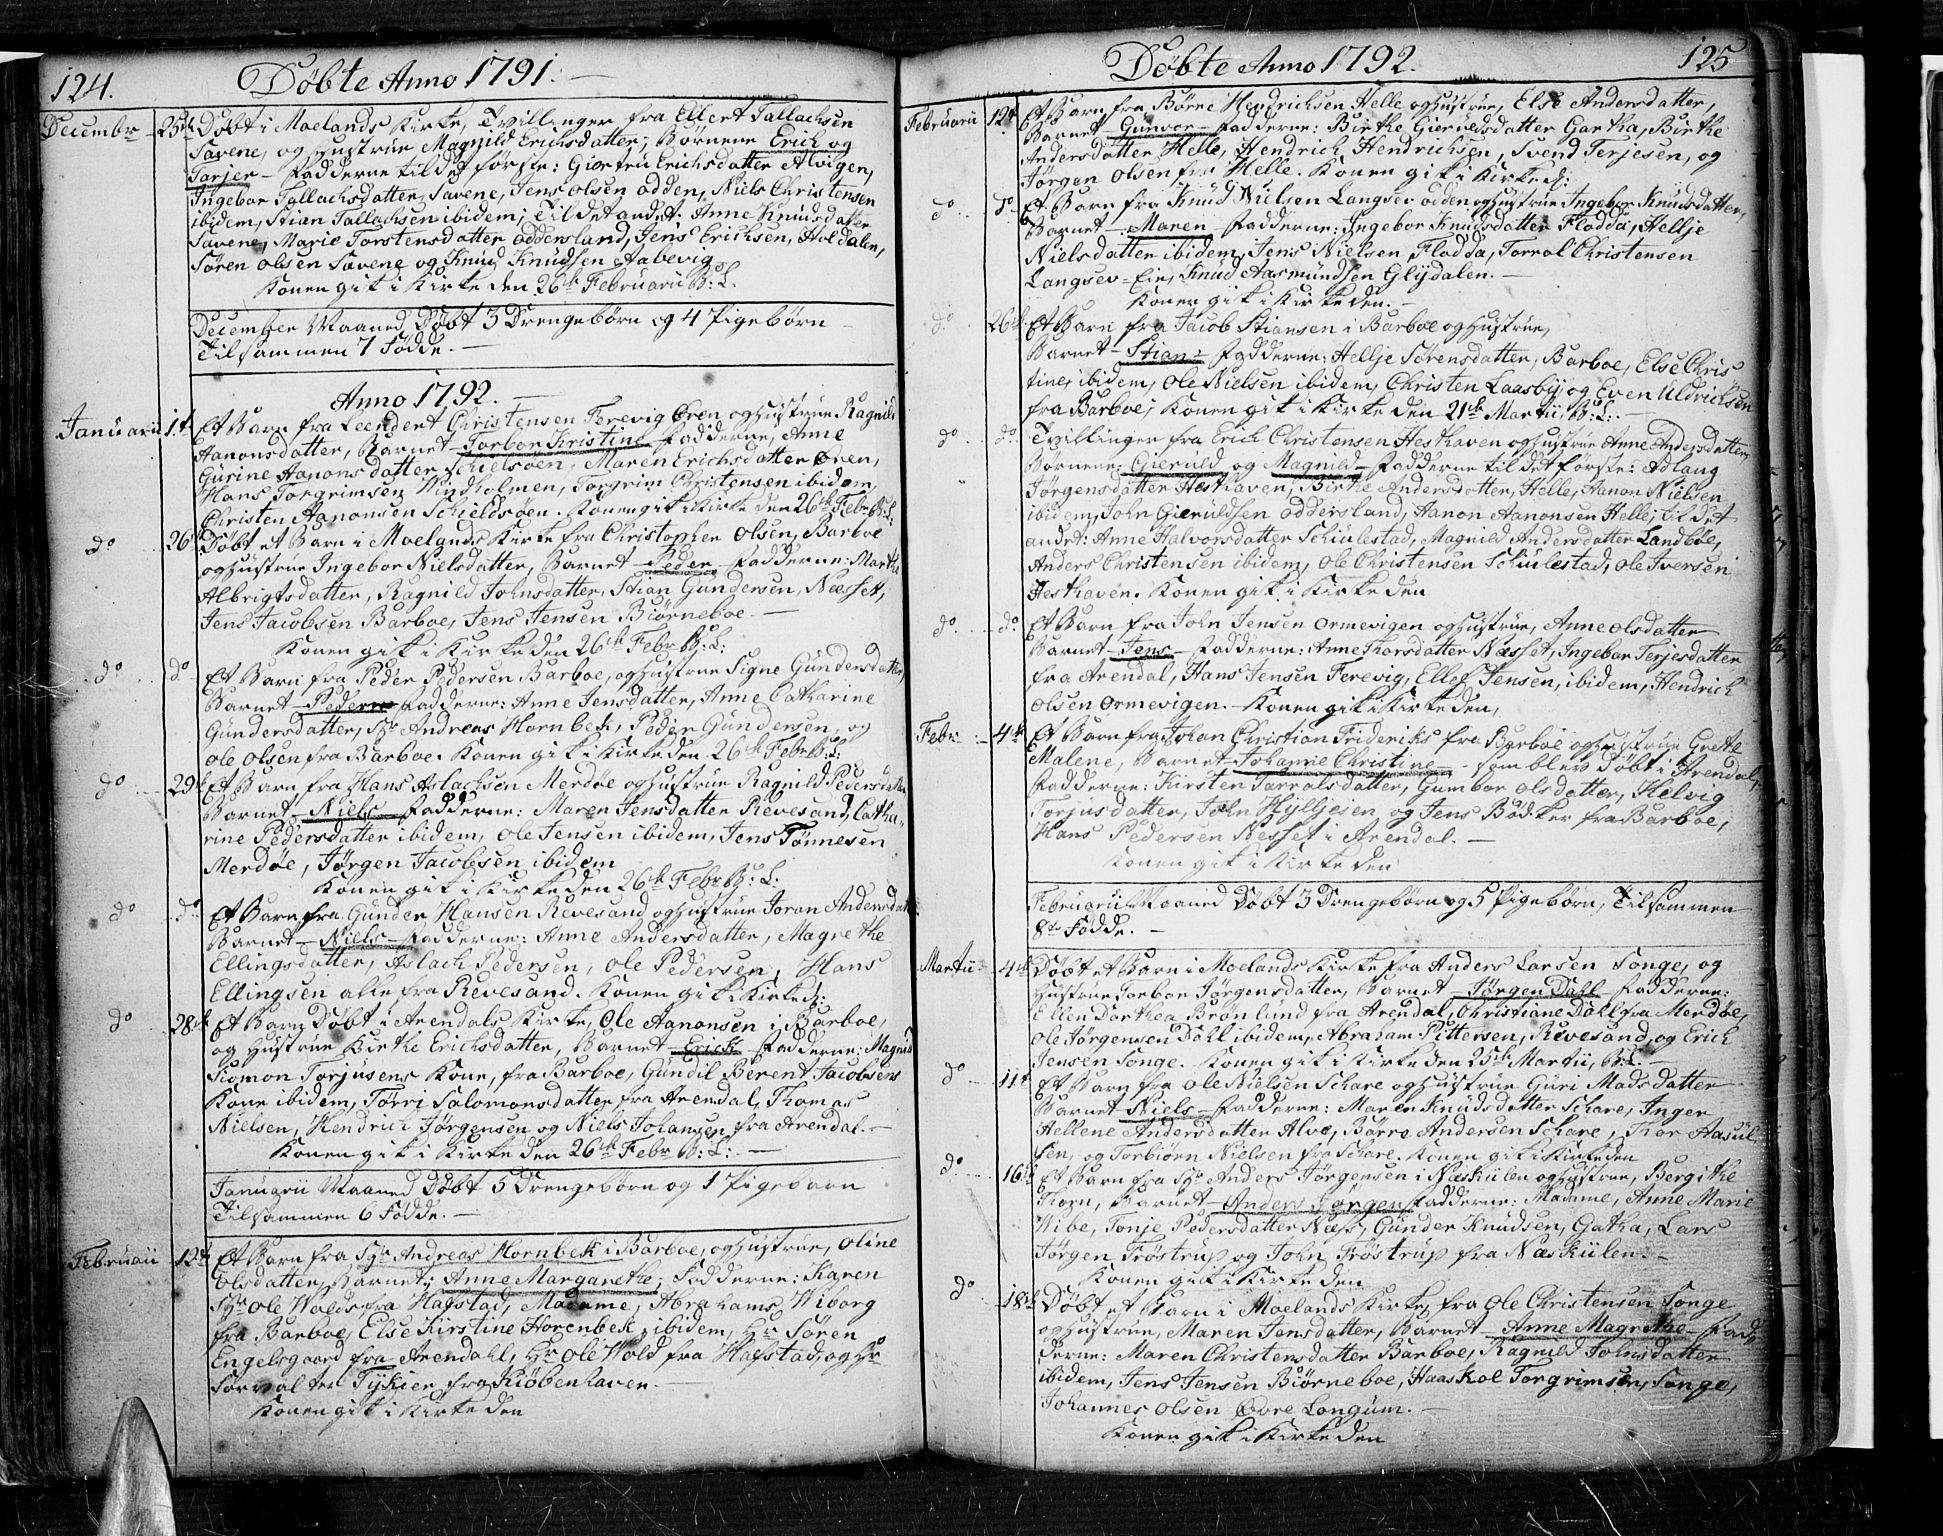 124. Døbte Anno 1791.
Decembr 25de Døbt i Moelands Kirke, Tvillinger fra Ellert Tallachsen
Savene, og Hustrue Magnild Erichsdatter, Børnene Erich og
Tarjer - Fadderne til det første: Giertru Erichsdatter Alvigen,
Ingebor Tallachsdatter Savene, Jens Olsen Odden, Niels Christensen
ibidem, Stian Tallachsen ibidem; Til det andet: Anne Knudsdatter
Savene, Marie Torstensdatter Oddersland, Jens Erichsen, Holdalen,
Søren Olsen Savene og Knud Knudsen Aabevig
Konen gik i Kirke den 26de Februarii B: L.
December Maaned Døbt 3 Drengebørn og 4 Pigebørn
Tilsammen 7 Fødde. -
Anno 1792.
Januarii 1ste Et Barn fra Leendert Christensen Ferevig Øren og Hustrue Ragnild
Aanonsdatter, Barnet - Torbor Kristine Fadderne, Anne
Gurine Aanonsdatter Schielsøen, Maren Erichsdatter Øren,
Hans Torgrimsen Windholmen, Torgrim Christensen ibidem,
Christen Aanonsen Schieldsøen. Konen gik i Kirke den 26de Febr. B: L:
do 26de Døbt et Barn i Moelands Kirke fra Christopher Olsen, Barboe
og Hustrue Ingebor Nielsdatter, Barnet - Peder - Fadderne: Marthe
Albrigtsdatter, Ragnild Johnsdatter, Stian Gundersen, Næsset,
Jens Jacobsen Barboe, Jens Jensen Biørneboe. -
Konen gik i Kirke den 26de Febr. B: L:
do do Et Barn fra Peder Pedersen Barboe, og Hustrue Signe Gundersdatter,
Barnet - Peder - Fadderne: Anne Jensdatter, Anne Catharine
Gundersdatter, Sr Andreas Hornbek, Peder Gundersen, og
Ole Olsen fra Barboe. Konen gik i Kirke den 26de Febr. B: L:
do 29de Et Barn fra Hans Aslachsen Merdøe og Hustrue Ragnild Pedersdatter
Barnet - Niels - Fadderne: Maren Jensdatter Revesand, Catha-
rine Pedersdatter ibidem, Ole Jensen ibidem, Jens Tønnesen
Merdøe, Jørgen Jacobsen ibidem
Konen gik i Kirke den 26de Febr. B: L.
do do Et Barn fra Gunder Hansen Revesand og Hustrue Joran Andersdatter
Barnet - Niels - Fadderne: Anne Andersdatter, Magrethe
Ellingsdatter, Aslach Pedersen, Ole Pedersen, Hans
Ellingsen alle fra Revesand. Konen gik i Kirke d:
do 28de Et Barn Døbt i Arendals Kirke, Ole Aanonsen i Barboe,
og Hustrue Birthe Erichsdatter, Barnet - Erich - Fadderne: Magnild
Sigmon Torjusens Kone, fra Barboe, Gundil Berent Jacobsens
Kone ibidem, Torri Salomonsdatter fra Arendal, Thomas
Nielsen, Hendrich Jørgensen og Niels Johansen fra Arendal. -
Konen gik i Kirke den 26de Febr. B: L: -
Januarii Maaned Døbt 5 Drengebørn og 1 Pigebarn
Tilsammen 6 Fødde. -
Februarii 12de Et Barn fra Sr Andreas Hornbek i Barboe, og Hustrue, Oline
Olsdatter, Barnet; Anne Margarethe; Fadderne: Karen
Sr Ole Wolds fra Hafstad, Madame, Abrahams Wiborg
fra Barboe, Else Kirstine Horenbek, ibidem, Hr Søren
Engelsgaard fra Arendahl, Hr Ole Wold fra Hafstad, og Hr
Forvalter Tykier fra Kiøbenhaven. -
Konen gik i Kirke den
Døbte Anno 1792. 125
Februarii 12te Et Barn fra Børre Hendrichsen Helle og Hustrue, Else Andersdatter,
Barnet - Gunvor - Fadderne: Birthe Gieruldsdatter Gartha, Birthe
Andersdatter Helle, Hendrich Hendrichsen, Svend Terjesen, og
Jørgen Olsen fra Helle. Konen gik i Kirke d:
do do Et Barn fra Knud Nielsen Langsev Odden og Hustrue Ingebor Knudsdatter,
Barnet - Maren - Fadderne: Ingebor Knudsdatter Flodda, Hellje
Nielsdatter ibidem, Jens Nielsen Flodda, Torrol Christensen
Langsev-Eie, Knud Aasmundsen Glydalen. -
Konen gik i Kirke den. -
do 26de Et Barn fra Jacob Stiansen i Barboe og Hustrue,
Barnet - Stian - Fadderne: Hellje Sørensdatter, Barboe, Else Chris
tine, ibidem, Ole Nielsen ibidem, Christen Laasby, og Even Uldrichsen
fra Barboe; Konen gik i Kirke den 21de Martii B: L: -
do do Tvillinger fra Erich Christensen Hesthaven og Hustrue Anne Andersdatter,
Børnene: Gieruld og Magnild - Fadderne til det første: Adlaug
Jørgensdatter Hesthaven, Birthe Andersdatter, Helle, Aanon Nielsen
ibidem, John Gieruldsen Oddersland, Aanon Aanonsen Helle; til det
andet: Anne Halvorsdatter Schiulestad, Magnild Andersdatter Landbøe,
Anders Christensen ibidem, Ole Christensen Schiulestad, Ole Iversen
Hesthaven. Konen gik i Kirke den
do do Et Barn fra John Jensen Ormevigen og Hustrue, Anne Olsdatter
Barnet - Jens - Fadderne: Anne Thorsdatter Næsset, Ingebor Terjesdatter
fra Arendal, Hans Jensen Ferevig, Ellef Jensen, ibidem, Hendrich
Olsen Ormevigen. - Konen gik i Kirke den,
Febr: 4de Et Barn fra Johan Christian Frideriks fra Barboe og Hustrue Grete
Malene, Barnet - Johanne Christine - som blev Døbt i Arendal,
Fadderne: Kirsten Tarralsdatter, Gumbor Olsdatter, Helvig
Torjusdatter, John Hylljejen og Jens Bødker fra Barboe,
Hans Pedersen Nesset i Arendal. -
Konen gik i Kirke den
Februarii Maaned Døbt 3 Drengebørn og 5 Pigebørn, Tilsammen
8te Fødde. -
Martii 4de Døbt et Barn i Moelands Kirke fra Anders Larsen Songe, og
Hustrue Torbor Jørgensdatter, Barnet - Jørgen Dahl - Fadderne:
Ellen Dorthea Brønlund fra Arendal, Christiane Dahl fra Merdøe,
Ole Jørgensen Dahl ibidem, Abraham Pittersen, Revesand, og Erich
Jensen Songe. Konen gik i Kirke den 25de Martii, B: L: -
do 11te Et Barn fra Ole Nielsen Schare og Hustrue Guri Madsdatter
Barnet Niels - Fadderne: Maren Knudsdatter Schare, Inger
Hellene Andersdatter Alve, Børre Andersen Schare, Thor Aasul-
sen, og Torbiørn Nielsen fra Schare. Konen gik i Kirke den
do 16de Et Barn fra Sr Anders Jørgensen i Næskiilen og Hustrue, Bergithe
Thorn, Barnet - Anders Jørgen Fadderne: Madame, Anne Marie
Wibe, Tonje Pedersdatter Næss, Gunder Knudsen, Gatha, Lars
Jørgen Trøstrup og John Trøstrup fra Næskiilen: -
Konen gik i Kirke den
do 18de Døbt et Barn i Moelands Kirke, fra Ole Christensen Songe
og Hustrue, Maren Jensdatter, Barnet - Anne Magrethe - Fad-
derne: Maren Christensdatter Barboe, Ragnild Johnsdatter
ibidem, Jens Jensen Biørneboe, Haaskol Torgrimsen, Songe,
Johannes Olsen Øvre Longum. -
Konen gik i Kirke den